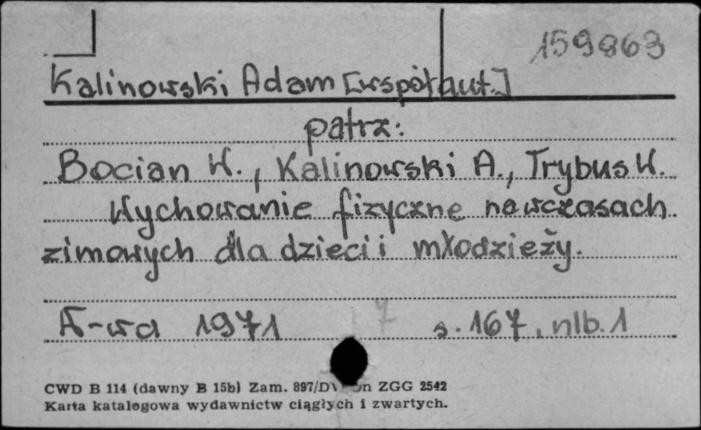 159863
Kalinowski Adam [współaut.]
patrz:
Bocian W., Kalinowski A., Trybus W.
Wychowanie fizyczne na wczasach
zimowych dla dzieci i młodzieży.
W-wa 1971 s. 167, nlb. 1
CWD B 114 (dawny B 15b) Zam. 897/D ZGG 2542
Karta katalogowa wydawnictw ciągłych i zwartych.